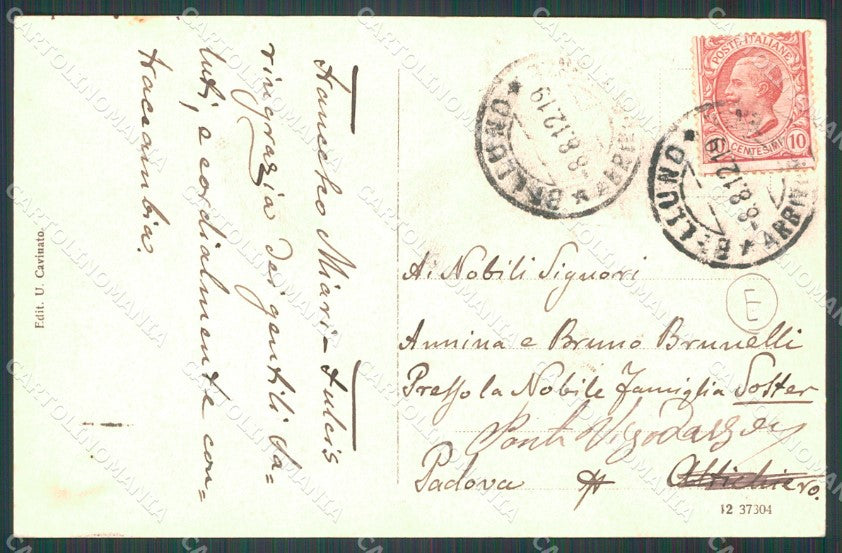 Francesco Miari-Fulcis
ringrazia dei gentili sa-
luti, e cordialmente con-
traccambia.
Edit. U. Cavinato.
POSTE ITALIANE
CENTESIMI 10
BELLUNO
ARRIVI
8.8.12.19
BELLUNO
ARRIVI
8.8.12.19
E
Ai Nobili Signori
Annina e Bruno Brunelli
Presso la Nobile famiglia Soster
Ponte Vigodarzere
Padova Altichiero.
12 37304
CARTOLINOMANIA